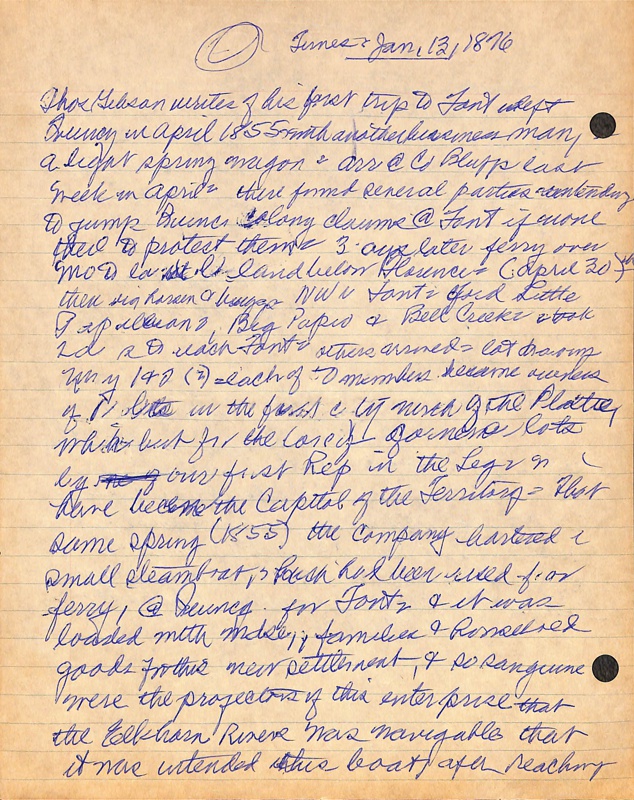 Times = Jan, 13, 1876
Thos Gibson writes of his first trip to Font = left
Quincy in April 1855 with another business man,
a light spring wagon = arr @ Co Bluff last
week in April = there found several parties intending
to jump Quincy colony claims @ Font if none
there to protect them = 3 days later ferry over
MO to land below Florence = (April 30)
then wagon NW to Font = ford Little
Papillion, Big Papio & Bell Creek = took
2d to reach Font = others arrived = lot drawing
May 1 (?) = each of members became owners
of lots in the first city north of the Platte,
which but for the loss of lots
by our first Rep in the Leg =
have become the Capital of the Territory = That
same spring (1855) the company chartered
small steamboat, which had been used for
ferry, @ Quincy for Font = & it was
loaded with mdse, families & household
goods for this new settlement, & so sanguine
were the projectors of this enterprise that
the Elkhorn River was navigable that
it was intended this boat, after reaching